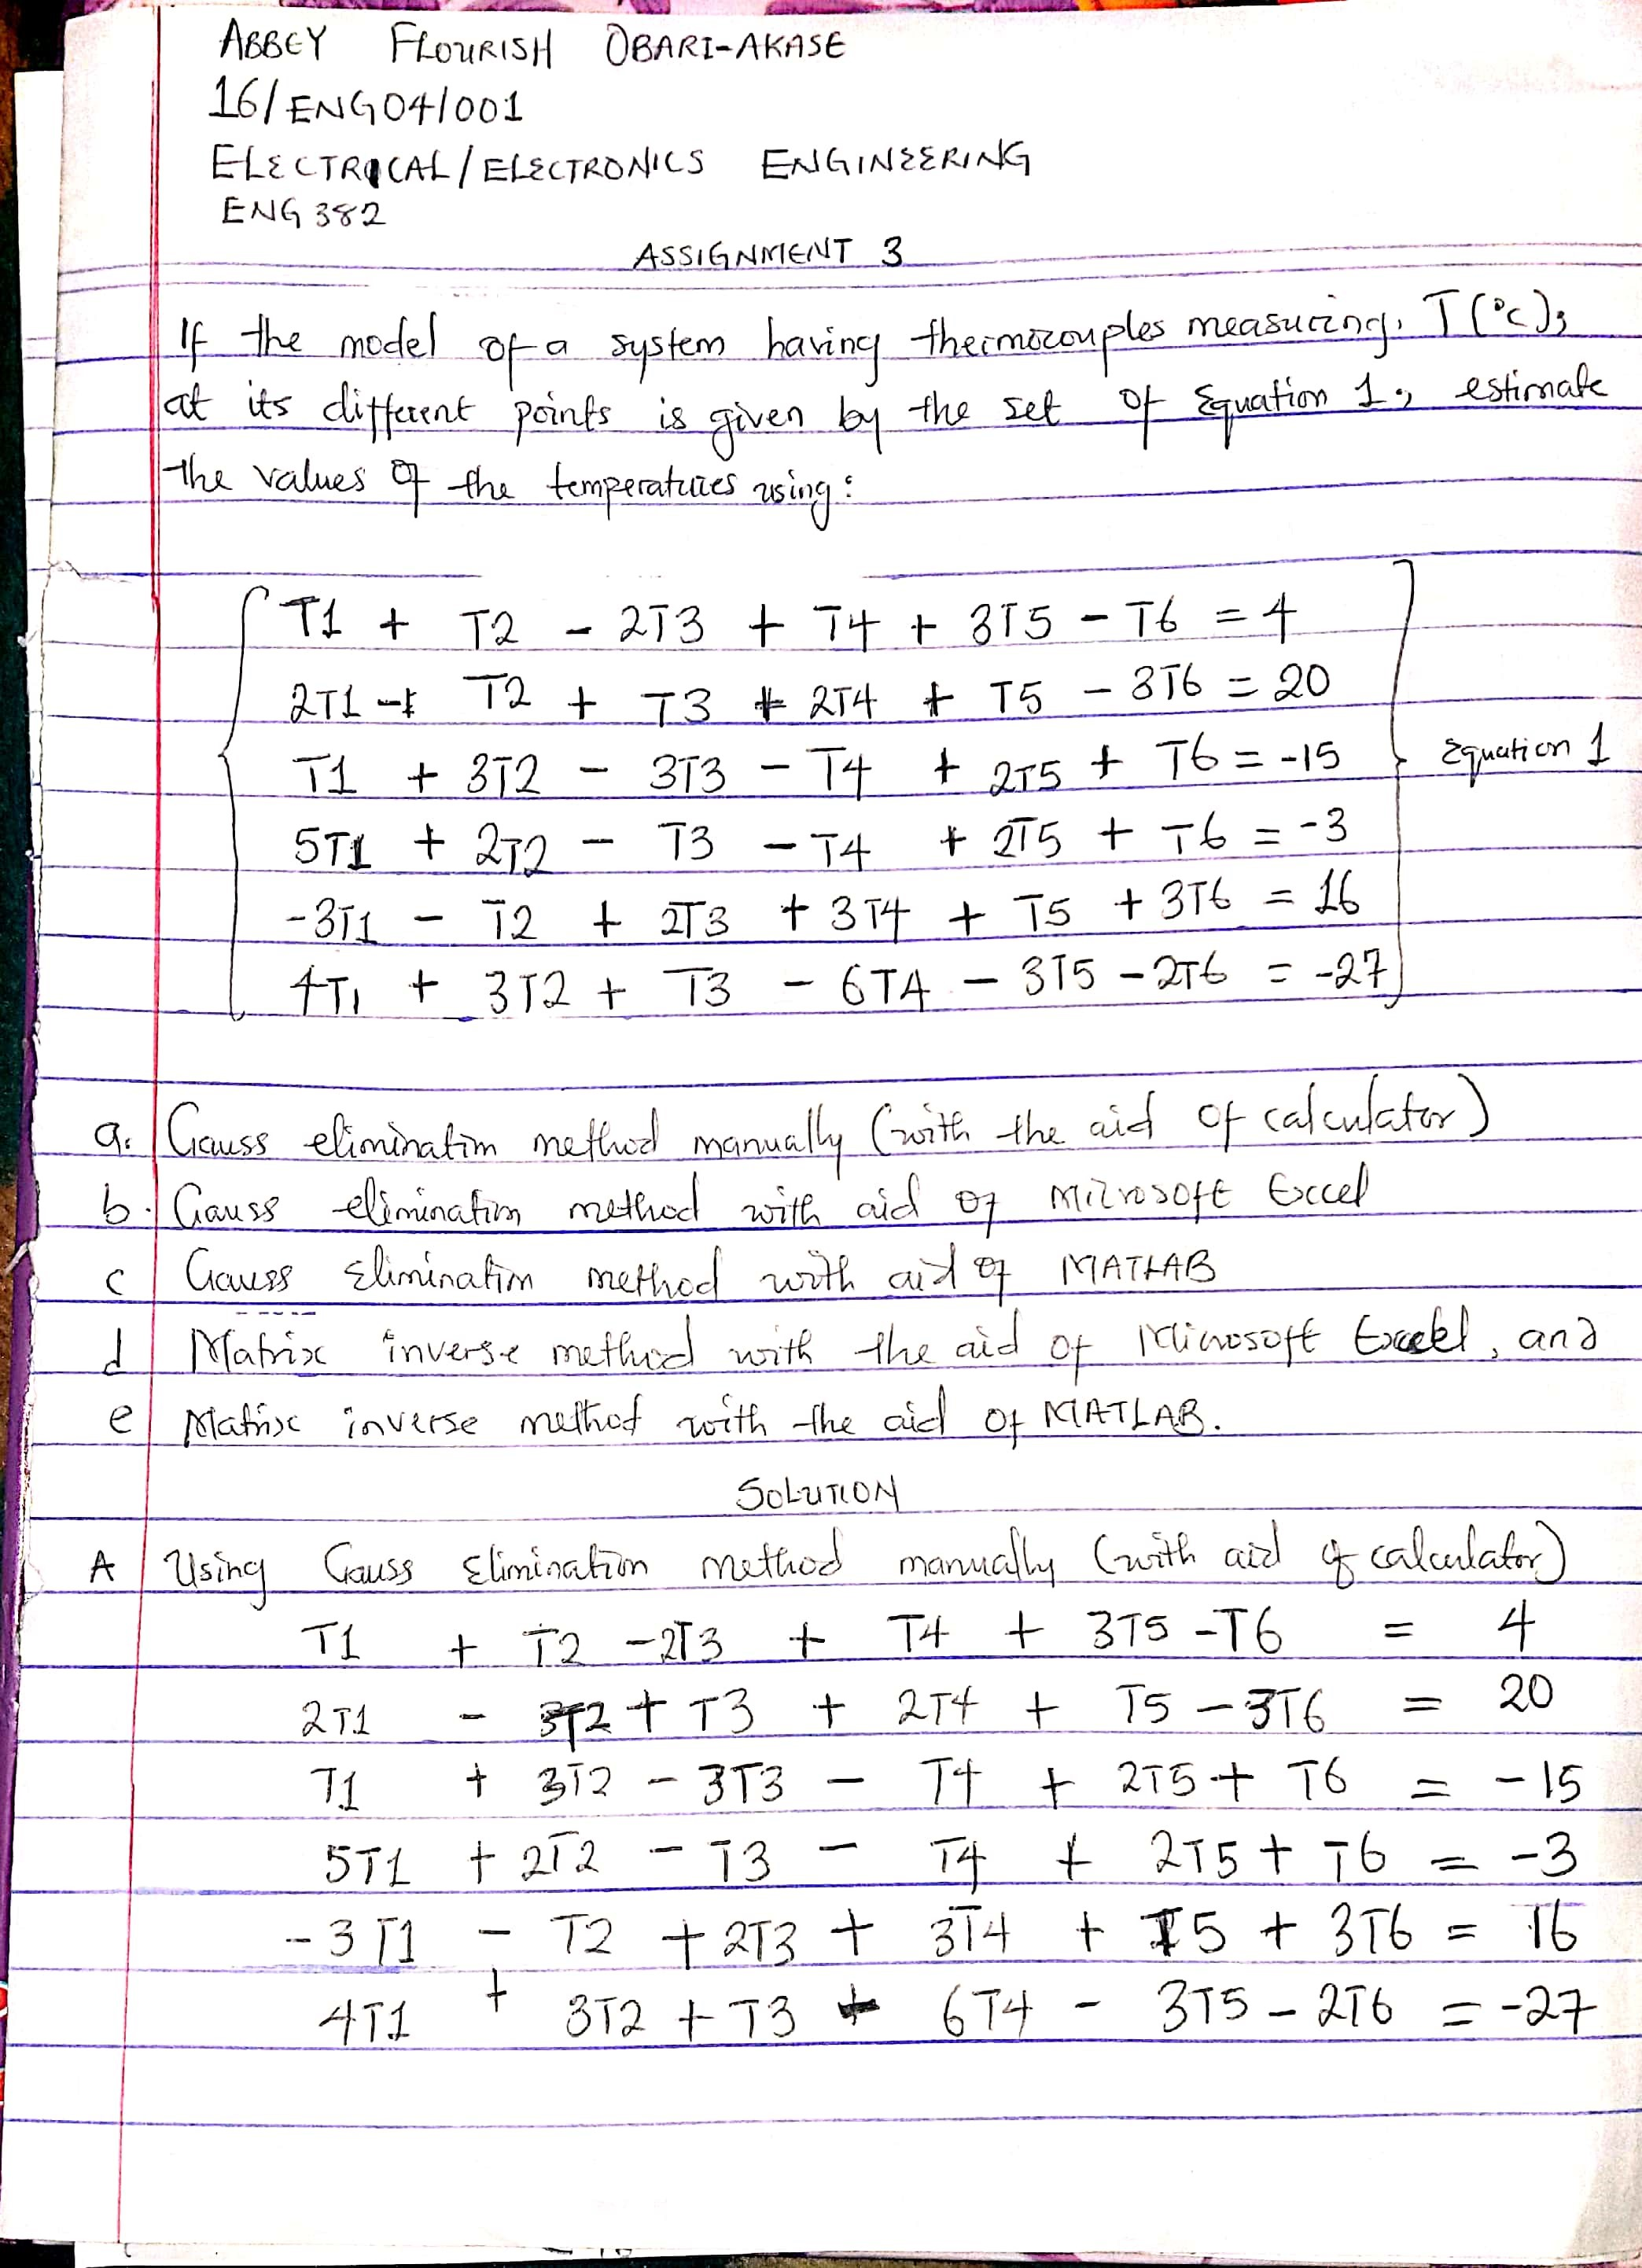 ABBEY FLOURISH OBARI-AKASE
16/ENG04/001
ELECTRICAL/ELECTRONICS ENGINEERING
ENG 382
ASSIGNMENT 3
If the model of a system having thermocouples measuring, T(°c),
at its different points is given by the set of Equation 1, estimate
the values of the temperatures using:
T1 + T2 - 2T3 + T4 + 3T5 - T6 = 4
2T1 - T2 + T3 + 2T4 + T5 - 3T6 = 20
T1 + 3T2 - 3T3 - T4 + 2T5 + T6 = -15
Equation 1
5T1 + 2T2 - T3 - T4 + 2T5 + T6 = -3
-3T1 - T2 + 2T3 + 3T4 + T5 + 3T6 = 16
4T1 + 3T2 + T3 - 6T4 - 3T5 - 2T6 = -27
a. Gauss elimination method manually (with the aid of calculator)
b. Gauss elimination method with aid of Microsoft Excel
c Gauss Elimination method with aid of MATLAB
d Matrix inverse method with the aid of Microsoft Excel, and
e Matrix inverse method with the aid of MATLAB.
SOLUTION
A Using Gauss Elimination method manually (with aid of calculator)
T1 + T2 - 2T3 + T4 + 3T5 - T6 = 4
2T1 - T2 + T3 + 2T4 + T5 - 3T6 = 20
T1 + 3T2 - 3T3 - T4 + 2T5 + T6 = -15
5T1 + 2T2 - T3 - T4 + 2T5 + T6 = -3
-3T1 - T2 + 2T3 + 3T4 + T5 + 3T6 = 16
4T1 + 3T2 + T3 6T4 - 3T5 - 2T6 = -27